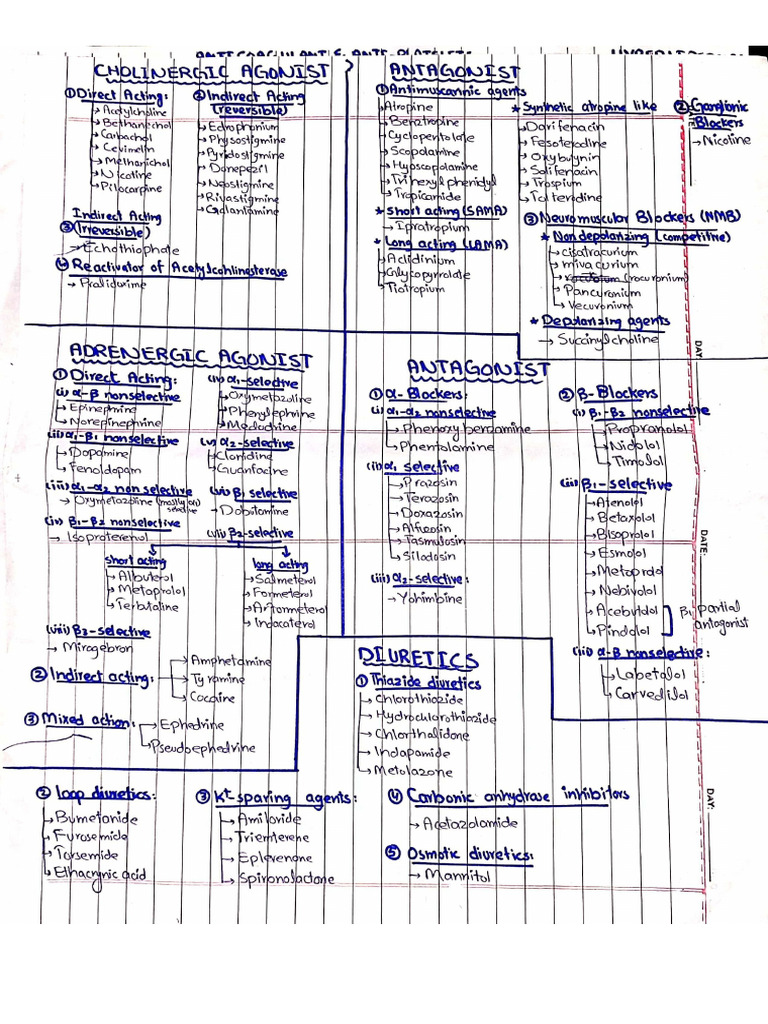 CHOLINERGIC AGONIST
① Direct Acting:
Acetylcholine
Bethanechol
Carbachol
Cevimelin
Methanichol
Nicotine
Pilocarpine
② Indirect Acting
(reversible)
Edrophonium
Physostigmine
Pyridostigmine
Donepezil
Neostigmine
Rivastigmine
Galantamine
Indirect Acting
③ (Irreversible)
Echothiophate
④ Reactivator of Acetylcohlinesterase
Pralidoxime
ANTAGONIST
① Antimuscarinic agents
Atropine
Benztropine
Cyclopentolate
Scopolamine
Hyoscopolamine
Trihexylphenidyl
Tropicamide
* Short acting (SAMA)
Ipratropium
* Long acting (LAMA)
Aclidinium
Glycopyrrolate
Tiotropium
* Synthetic atropine like
Darifenacin
Fesoterodine
Oxybutynin
Solifenacin
Trospium
Tolterodine
② Ganglionic
Blockers
Nicotine
③ Neuromuscular Blockers (NMB)
* Nondepolarizing (competitive)
cisatracurium
mivacurium
(rocuronium)
Pancuronium
Vecuronium
* Depolarizing agents
Succinylcholine
DAY:
ADRENERGIC AGONIST
① Direct Acting:
(i) α-β nonselective
Epinephrine
Norepinephrine
(ii) α1-β1 nonselective
Dopamine
Fenoldopam
(iii) α1-α2 non selective
Oxymetazoline (mostly α1 selective
(iv) β1-β2 nonselective
Isoproterenol
(iv) α1-selective
Oxymetazoline
Phenylephrine
Medodrine
(v) α2-selective
Clonidine
Guanfacine
(vi) β1 selective
Dobutamine
(vii) β2-selective
short acting
Albuterol
Metoprolol
Terbutaline
long acting
Salmeterol
Formeterol
Arformeterol
Indacaterol
(viii) β3-selective
Mirabegron
② Indirect acting:
Amphetamine
Tyramine
Cocaine
③ Mixed action:
Ephedrine
Pseudoephedrine
ANTAGONIST
① α-Blockers:
(i) α1-α2 nonselective
Phenoxybenzamine
Phentolamine
(ii) α1 selective
Prazosin
Terazosin
Doxazosin
Alfuosin
Tasmulosin
Silodosin
(iii) α2-selective:
Yohimbine
② β-Blockers
(i) β1-β2 nonselective
Propranolol
Nidolol
Timolol
(ii) β1-selective
Atenolol
Betaxolol
Bisoprolol
Esmolol
Metoprolol
Nebivolol
Acebutolol
Pindolol
β1 partial
antogonist
(iii) α-β nonselective:
Labetalol
Carvedilol
DATE:
DIURETICS
① Thiazide diuretics
Chlorothiazide
Hydroclorothiazide
Chlorthalidone
Indapamide
Metolazone
② loop diuretics:
Bumetanide
Furosemide
Torsemide
Ethacrynic acid
③ K+-sparing agents:
Amiloride
Triemterene
Eplerenone
Spironolactone
④ Carbonic anhydrase inhibitors
Acetazolamide
⑤ Osmotic diuretics:
Mannitol
DAY: